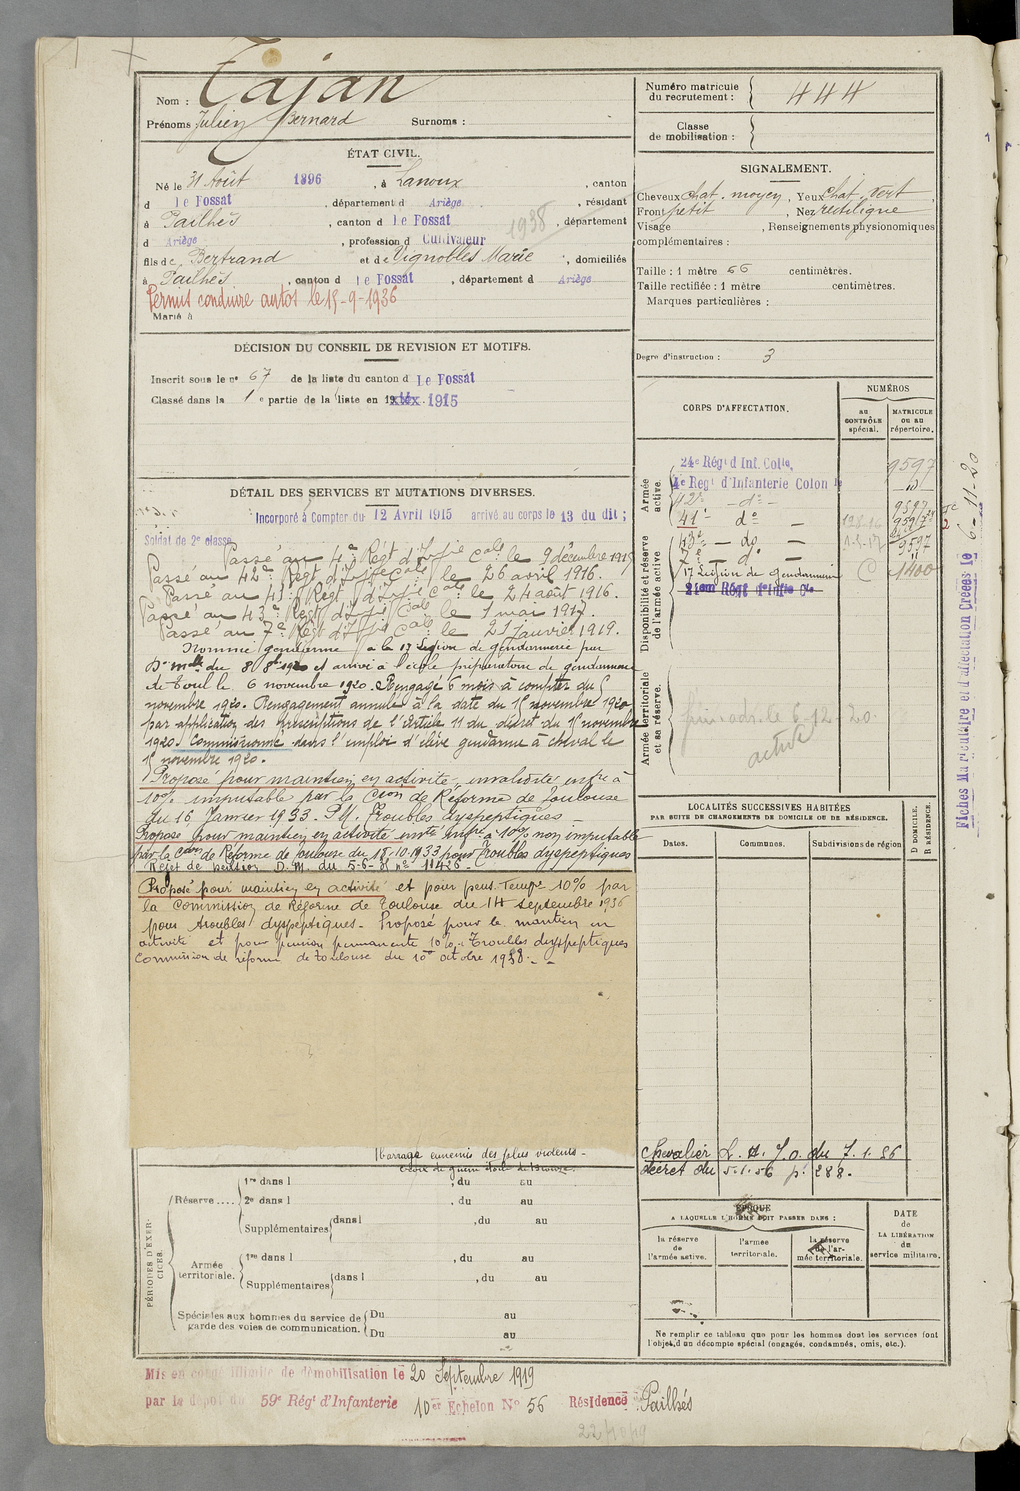 Nom : Tajan
Prénoms Julien Bernard Surnoms :
Numéro matricule du recrutement : 444
Classe de mobilisation :
ÉTAT CIVIL.
Né le 31 Août 1896, à Lanoux, canton
d Le Fossat, département d Ariège, résidant
à Pailhès, canton d Le Fossat, département
1938
d Ariège, profession d Cultivateur
fils de Bertrand et de Vignobles Marie, domiciliés
à Pailhès, canton d Le Fossat, département d Ariège
Permis conduire autos le 15-9-1936
Marié à
SIGNALEMENT.
Cheveux chat. moyen, Yeux chat. vert,
Front petit, Nez rectiligne
Visage , Renseignements physionomiques
complémentaires :
Taille : 1 mètre 66 centimètres.
Taille rectifiée : 1 mètre centimètres.
Marques particulières :
Degré d'instruction : 3
DÉCISION DU CONSEIL DE REVISION ET MOTIFS.
Inscrit sous le n° 67 de la liste du canton d Le Fossat
Classé dans la 1e partie de la liste en 1915
DÉTAIL DES SERVICES ET MUTATIONS DIVERSES.
Incorporé à Compter du 12 Avril 1915 arrivé au corps le 13 du dit ;
Soldat de 2e classe
Passé au 4e Régt d'Inf.ie Cale le 9 décembre 1915
Passé au 42e Régt d'Inf.ie Cale le 26 avril 1916.
Passé au 41e Régt d'Inf.ie Cale le 24 août 1916.
Passé au 43e Régt d'Inf.ie Cale le 1 mai 1917.
Passé au 7e Régt d'Inf.ie Cale le 21 janvier 1919.
Nommé gendarme à la 17 Légion de gendarmerie par
Dn mlle du 8 8bre 1920 et arrivé à l'école préparatoire de gendarmerie
de Toul le 6 novembre 1920. Rengagé 6 mois à compter du 5
novembre 1920. Rengagement annulé à la date du 15 novembre 1920
par application des prescriptions de l'article 11 du décret du 15 novembre
1920. Commissionné dans l'emploi d'élève gendarme à cheval le
15 novembre 1920.
Proposé pour maintien en activité, invalidité infre à
10% imputable par la Cion de Réforme de Toulouse
du 16 Janvier 1933. P.M. Troubles dyspeptiques _
Proposé pour maintien en activité invté infre à 10% non imputable
par la Con de Réforme de Toulouse du 18.10.1933 pour Troubles dyspeptiques
Rejet de pension D.M. du 5-6-35 n° 11426-
Proposé pour maintien en activité et pour pens. Tempre 10% par
la Commission de Réforme de Toulouse du 14 septembre 1936
pour troubles dyspeptiques - Proposé pour le maintien en
activité et pour pension permanente 10% - Troubles dyspeptiques
Commission de réforme de Toulouse du 10 octobre 1938. -
barrage ennemis des plus violents -
croix de guerre étoile de bronze.
CORPS D'AFFECTATION.
NUMÉROS
AU CONTRÔLE spécial.
MATRICULE OU AU répertoire.
Armée active.
24e Régt d'Inf. Colle. 9597
4e Regt d'Infanterie Colon le
Disponibilité et réserve de l'armée active.
42e - do - 9597
41e do - 9597
43e - do - 9597
7e - do "
17 Légion de gendarmerie C 1400
Armée territoriale et sa réserve.
6-12-20.
active
LOCALITÉS SUCCESSIVES HABITÉES
PAR SUITE DE CHANGEMENTS DE DOMICILE OU DE RÉSIDENCE.
Dates. Communes. Subdivisions de région
D DOMICILE. R RÉSIDENCE.
Chevalier L.H. J.O. du 7.1.56
décret du 5.1.56 p. 288.
Fiches Matriculaire et d'affectation Créées le 6-11-20
PÉRIODES D'EXERCICES.
Réserve .... 1re dans l , du au
2e dans l , du au
Supplémentaires dans l , du au
Armée territoriale. 1re dans l , du au
Supplémentaires dans l , du au
Spéciales aux hommes du service de garde des voies de communication. Du au
Du au
ÉPOQUE
A LAQUELLE L'HOMME DOIT PASSER DANS :
la réserve de l'armée active.
l'armée territoriale.
la réserve de l'armée territoriale.
DATE de LA LIBÉRATION du service militaire.
Ne remplir ce tableau que pour les hommes dont les services font
l'objet d'un décompte spécial (engagés, condamnés, omis, etc.).
Mis en congé illimité de démobilisation le 20 Septembre 1919
par le dépôt du 59e Régt d'Infanterie 10er Echelon N° 56 Résidence Pailhés
22/10/19